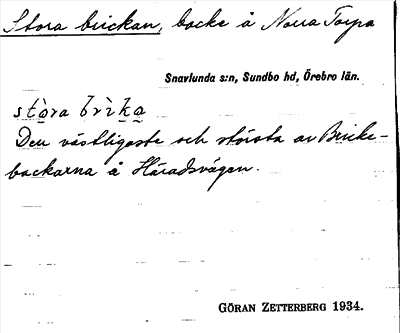 Stora brickan, backe å Norra Torpa
Snavlunda s:n, Sundbo hd, Örebro län.
stòra brìka
Den västligaste och största av Bricke-
backarna å Häradsvägen.
GÖRAN ZETTERBERG 1934.